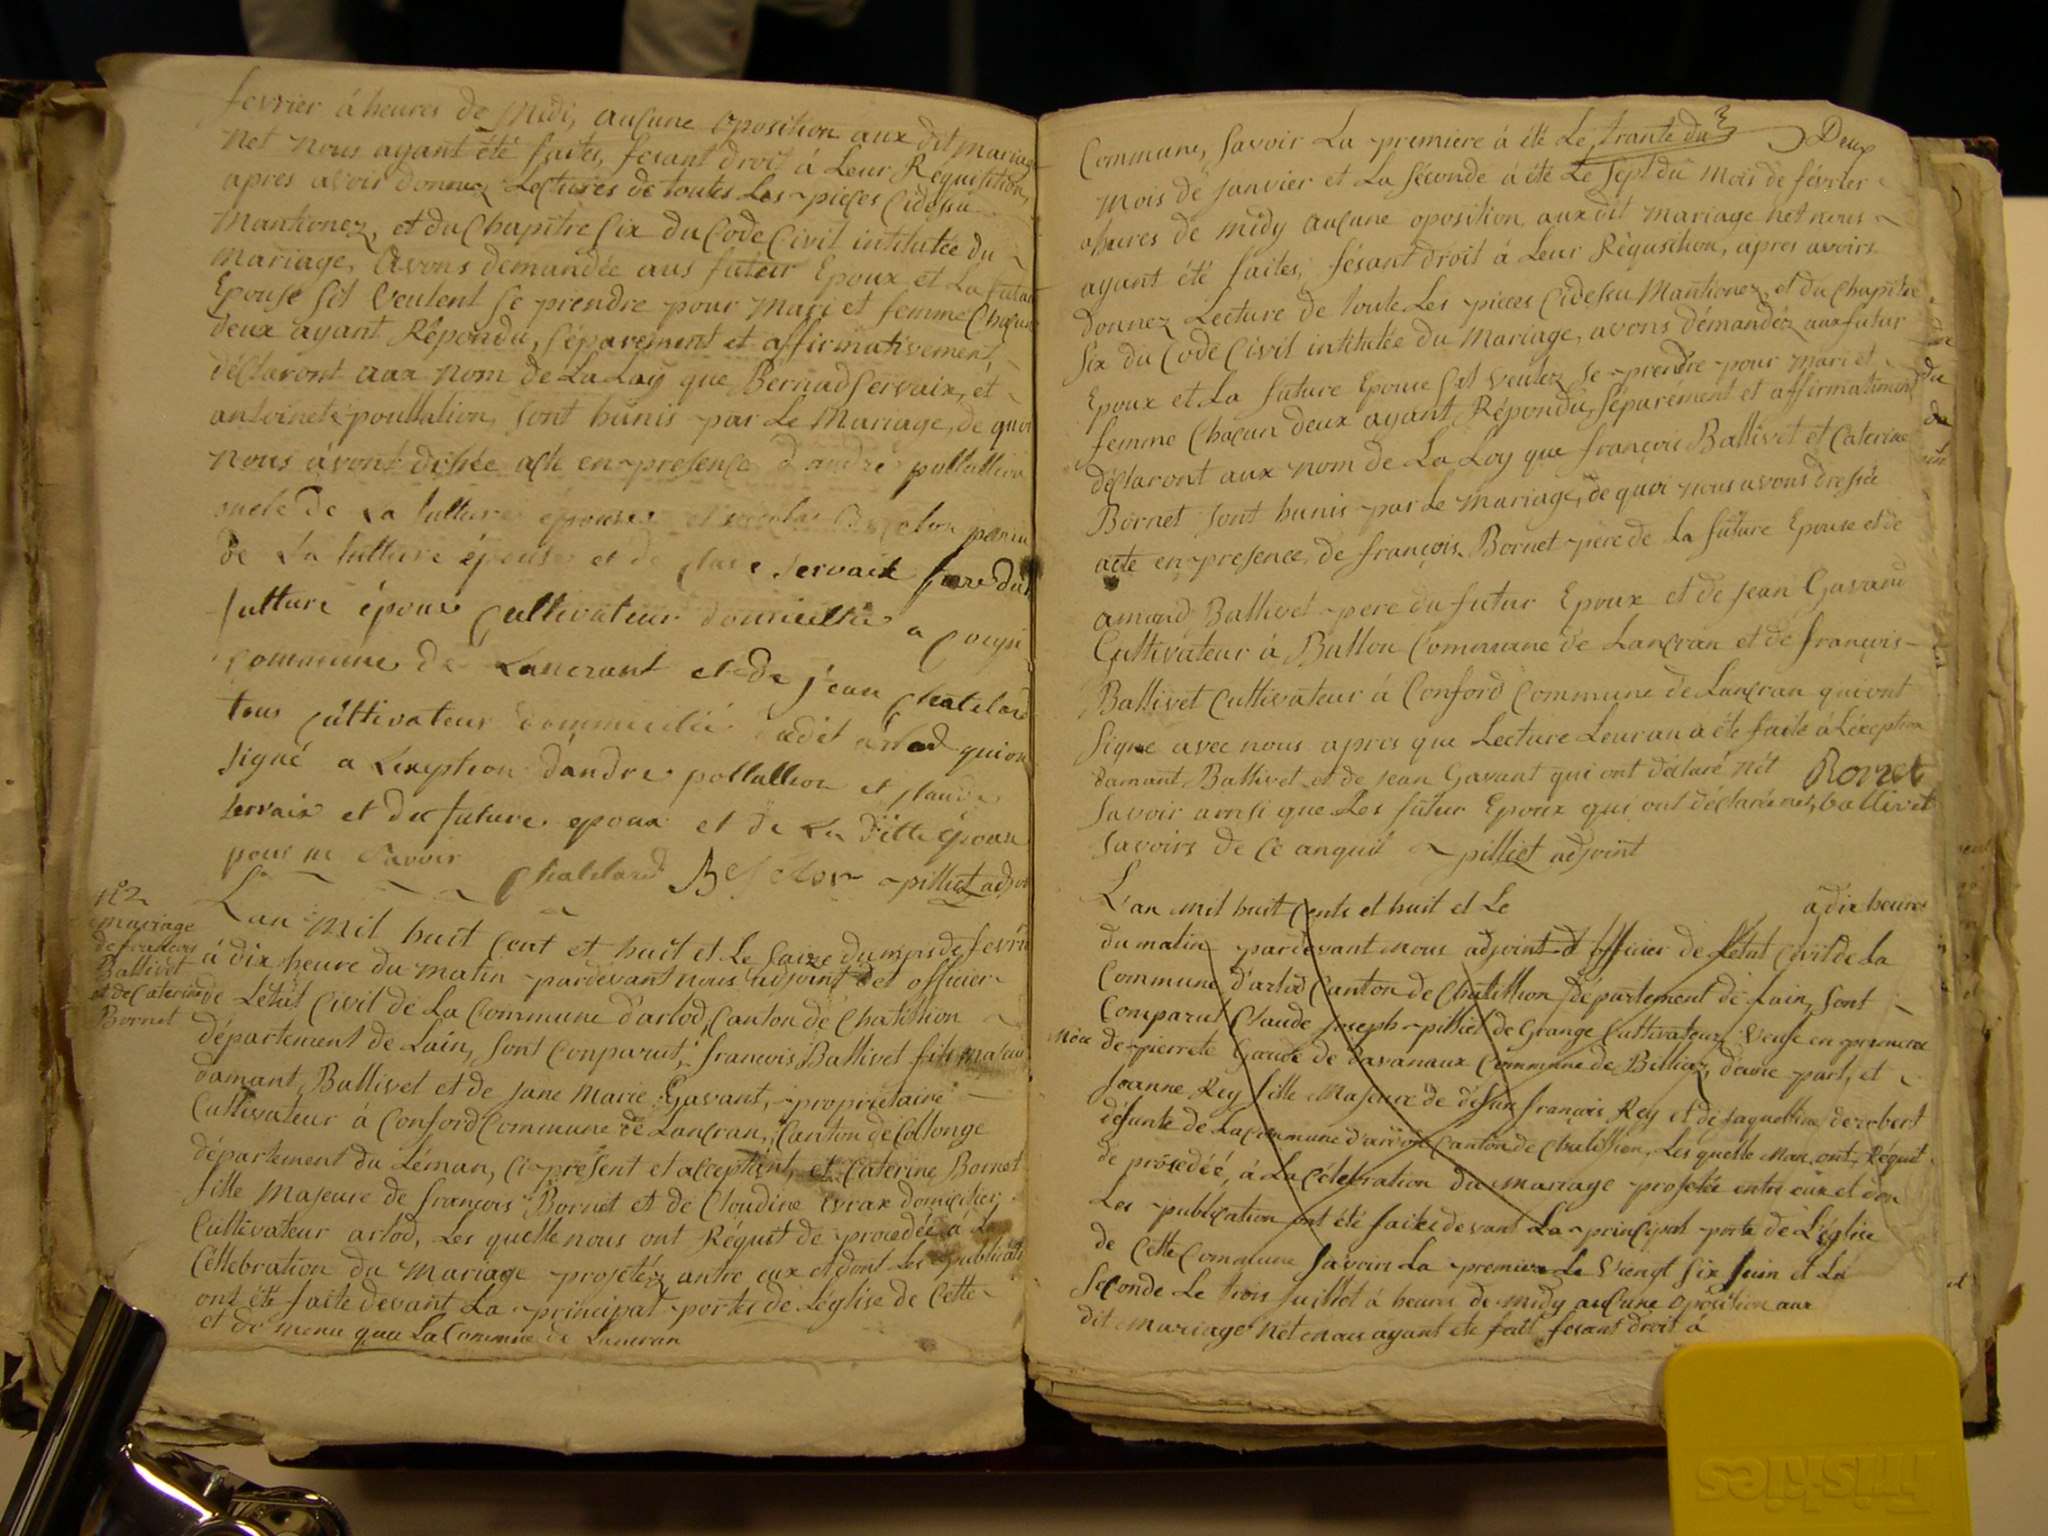 fevrier á heures de Midi, aucune oposition aux dit mariage
net nous ayant été faites, fesant droit à Leur Réquisition,
apres avoir donnez Lectures de toutes Les pieces Cidessu
Mantionez, et du Chapitre Six du Code Civil intitulée du
Mariage, avons demandée aus futur Epoux et La future
Epouse sit veulent se prendre pour Mari et femme Chacun
deux ayant Répondu, séparement et affirmativement,
déclaront aux nom de La Loy que Bernad Servaix, et
antoinete poullalion, sont hunis par Le Mariage, de quoi
nous avons acte en presence d'andré pollallion
de La futture épouse et
de La futture épouse et de Servaix frere du
futture époux Cultivateur à
commune de Lancrant et de jean Chatelard
tous cultivateur quion
signé a L'exeption d'andre pollallion et
Servaix et du future epoux et de La ditte épouse
pour ne Savoir Chatelard pilliet adjoint
N° 2
Mariage
de françois
Ballivet
et de Caterine
Bornet
L'an Mil huit Cent et huit et Le Saize du mois de fevrier
á dix heure du Matin pardevant nous adjoint et officier
de L'état Civil de La Commune d'arlod, Canton de Chatillion
département de Lain, sont Conparut, françois Ballivet fils Majeur
damant Ballivet et de jane Marie Gavant, proprietaire
Cultivateur à Conford Commune de Lancran, Canton de Collonge
département du Léman, Ci present et aceptient, et Caterine Bornet
fille Majeure de françois Bornet et de Cloudine
Cultivateur arlod, Les quelle nous ont Réquit de procedée a La
Cellebration du Mariage projetéez antre eux et dont Les publications
ont été faite devant La principal porte de Léglise de Cette
et de meme que La Commune de Lancran
Commune, Savoir La premiere à été Le trante du Deux
Mois de janvier et La Séconde à été Le Sept du Mois de février
ahures de midy aucune oposition, aux dit Mariage net nous
ayant été faites, fésant droit à Leur Réquisition, apres avoirs
donnez Lecture de toute Les pieces Cidessu Mantionez, et du Chapitre
six du Code Civil intitulée du Mariage, avons démandéz aux futur
Epoux et La future Epouse sit veulez se prendre pour Mari et
femme Chacun deux ayant Répondu, séparement et affirmativment
déclaront aux nom de La Loy que françois Ballivet et Caterine
Bornet sont hunis par Le Mariage, de quoi nous avons dressée
acte en presence, de françois Bornet pere de La future Epouse et de
amand Ballivet pere du futur Epoux et de jean Gavand
Cultivateur à Ballon Commune de Lancran et de françois
Ballivet Cultivateur à Conford Commune de Lancran qui ont
Signe avec nous apres que Lecture Leur an à été faite à Léxeption
damant Ballivet et de jean Gavant qui ont déclaré nét Bornet
Savoir ainsi que Les futur Epoux qui ont déclarée net, ballivet
Savoirs de Ce anquit pilliet adjoint
L'an mil huit Cents et huit et Le à dix heures
du matin pardevant nous adjoint et officier de L'état Civil de La
Commune d'arlod Canton de Chatillion, département de Lain, sont
Comparut Claude joseph pilliet de Grange Cultivateur Veuf en premiere
de pierrete Gaude de Davanaux Commune de Billiaz, d'aune part, et
Joanne Rey fille Majeure de défun françois Rey et de jaqueline de robert
défunte de La Commune d'arlod Canton de Chatillion, Les quelle Nous ont Réquit
de prosedéé, à La Célebration du Mariage projetée entre eux et don
Les publication ont été faites devant La principal porte de L'église
de Cette Commune Savoir La premiere Le Viengt Six juin et La
Seconde Le trois juillet à heures de midy aucune oposition aux
dit Mariage Net nous ayant ete fait fesant droit à
Friskies